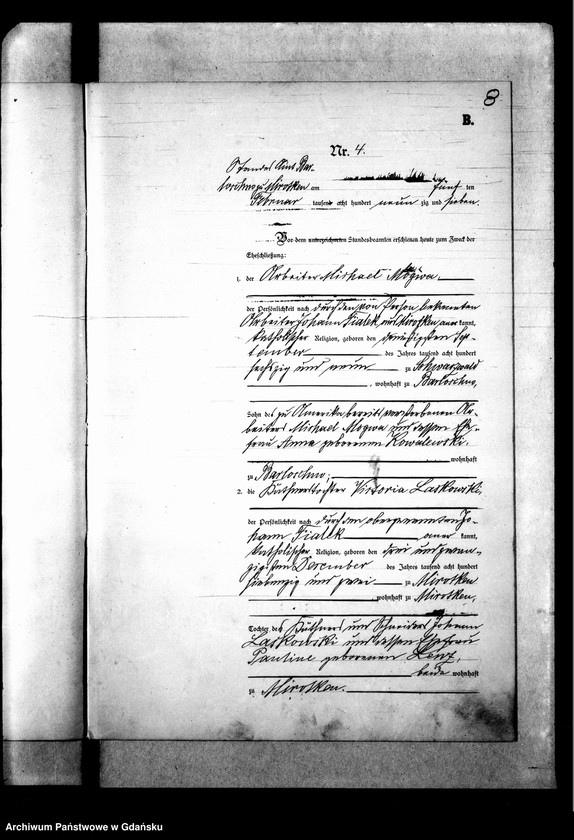 8
B.
Nr. 4.
Standes Amt Bar-
loschno zu Mirotken am fünf ten
Februar tausend acht hundert neun zig und sieben.
Vor dem unterzeichneten Standesbeamten erschienen heute zum Zweck der
Eheschließung:
1. der Arbeiter Michael Mogwa
der Persönlichkeit nach durch den von Person bekannten
Arbeiter Johann Fialek aus Mirotken aner kannt,
katholischer Religion, geboren den dreißigsten Sep-
tember des Jahres tausend acht hundert
sechszig und neun zu Schwarzwald
, wohnhaft zu Barloschno,
Sohn des zu Amerika bereits verstorbenen Ar-
beiters Michael Mogwa und dessen Ehe-
frau Anna geborenen Kowalewski.
wohnhaft
zu Barloschno;
2. die Käthnertochter Victoria Laskowski,
der Persönlichkeit nach durch den obengenannten Jo-
hann Fialek aner kannt,
katholischer Religion, geboren den drei und zwan-
zigsten December des Jahres tausend acht hundert
siebenzig und zwei zu Mirotken
, wohnhaft zu Mirotken,
Tochter des Käthners und Schneiders Johann
Laskowski und dessen Ehefrau
Pauline geborenen Lenz,
beide wohnhaft
zu Mirotken.
Archiwum Państwowe w Gdańsku